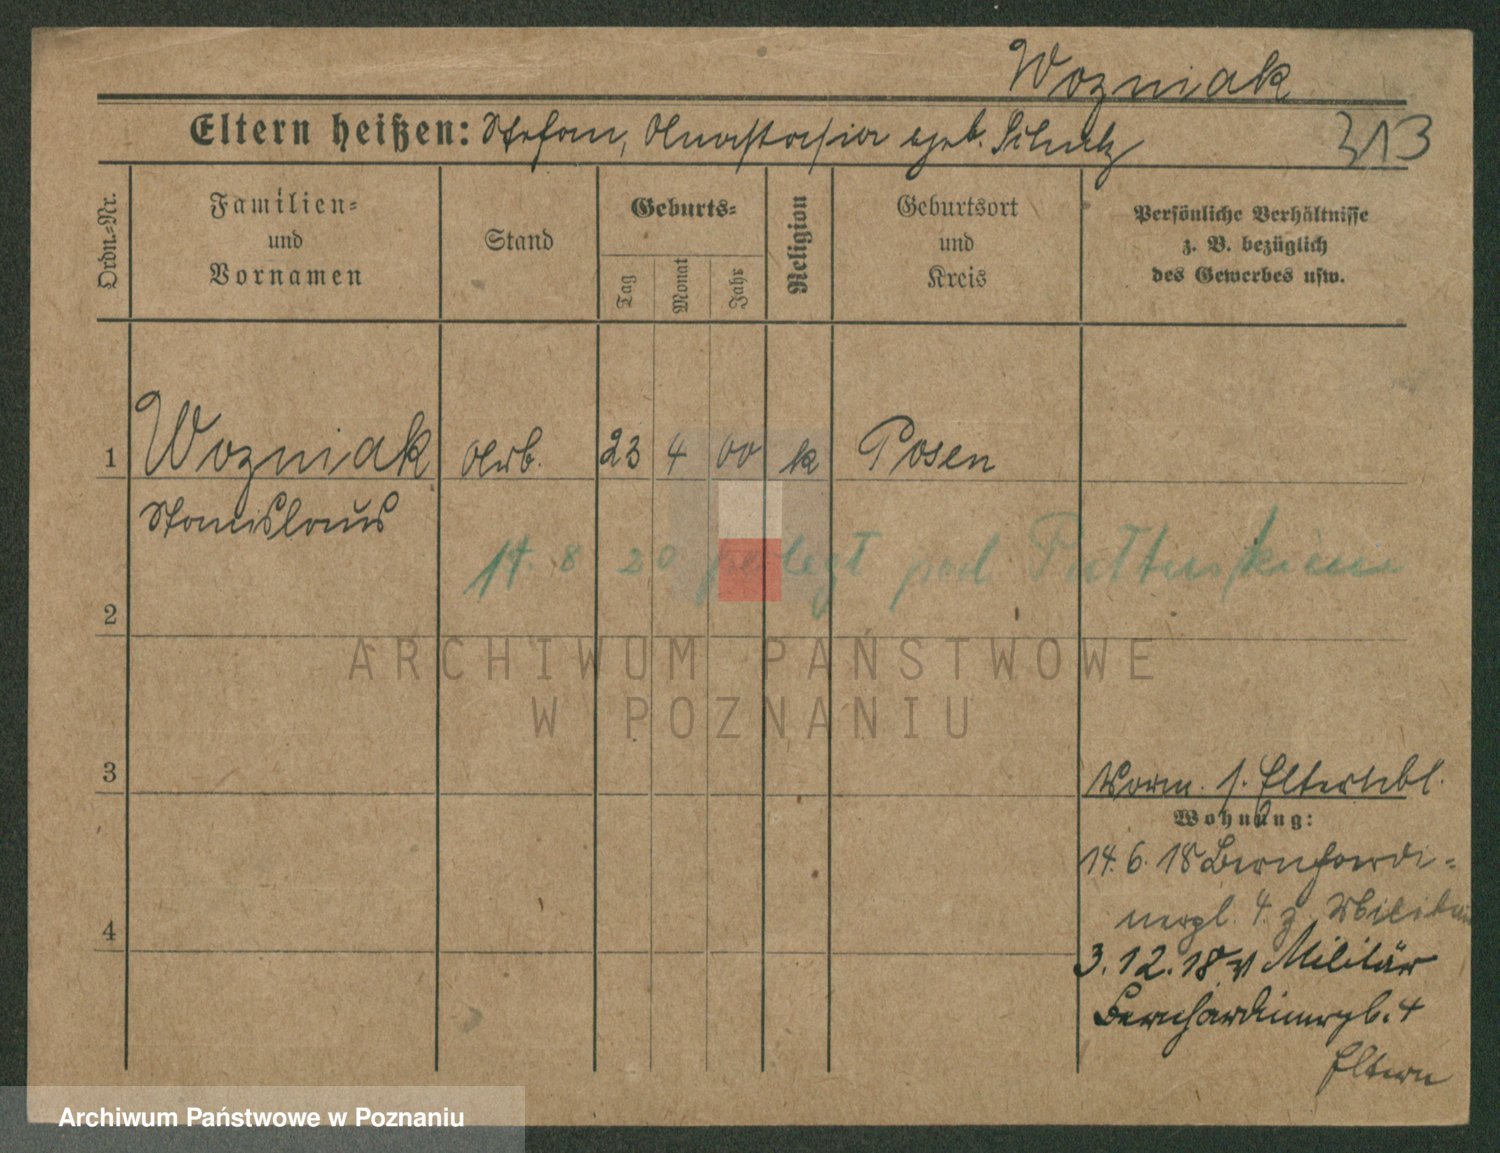 Wozniak
Eltern heißen: Stefan, Anastasia geb. Schulz
313
Ordn.-Nr.
Familien-
und
Vornamen
Stand
Geburts-
Tag
Monat
Jahr
Religion
Geburtsort
und
Kreis
Persönliche Verhältnisse
z. B. bezüglich
des Gewerbes usw.
1 Wozniak Arb. 23 4 00 k Posen
Stanislaus
14. 8 20 verlegt
2
ARCHIWUM PAŃSTWOWE
W POZNANIU
3
Vorm. s. Elternbl.
Wohnung:
14. 6. 18 Bernhardi-
nerpl. 4. z. Militär
4
3. 12. 18 v Militär
Bernhardinerpl. 4
Eltern
Archiwum Państwowe w Poznaniu